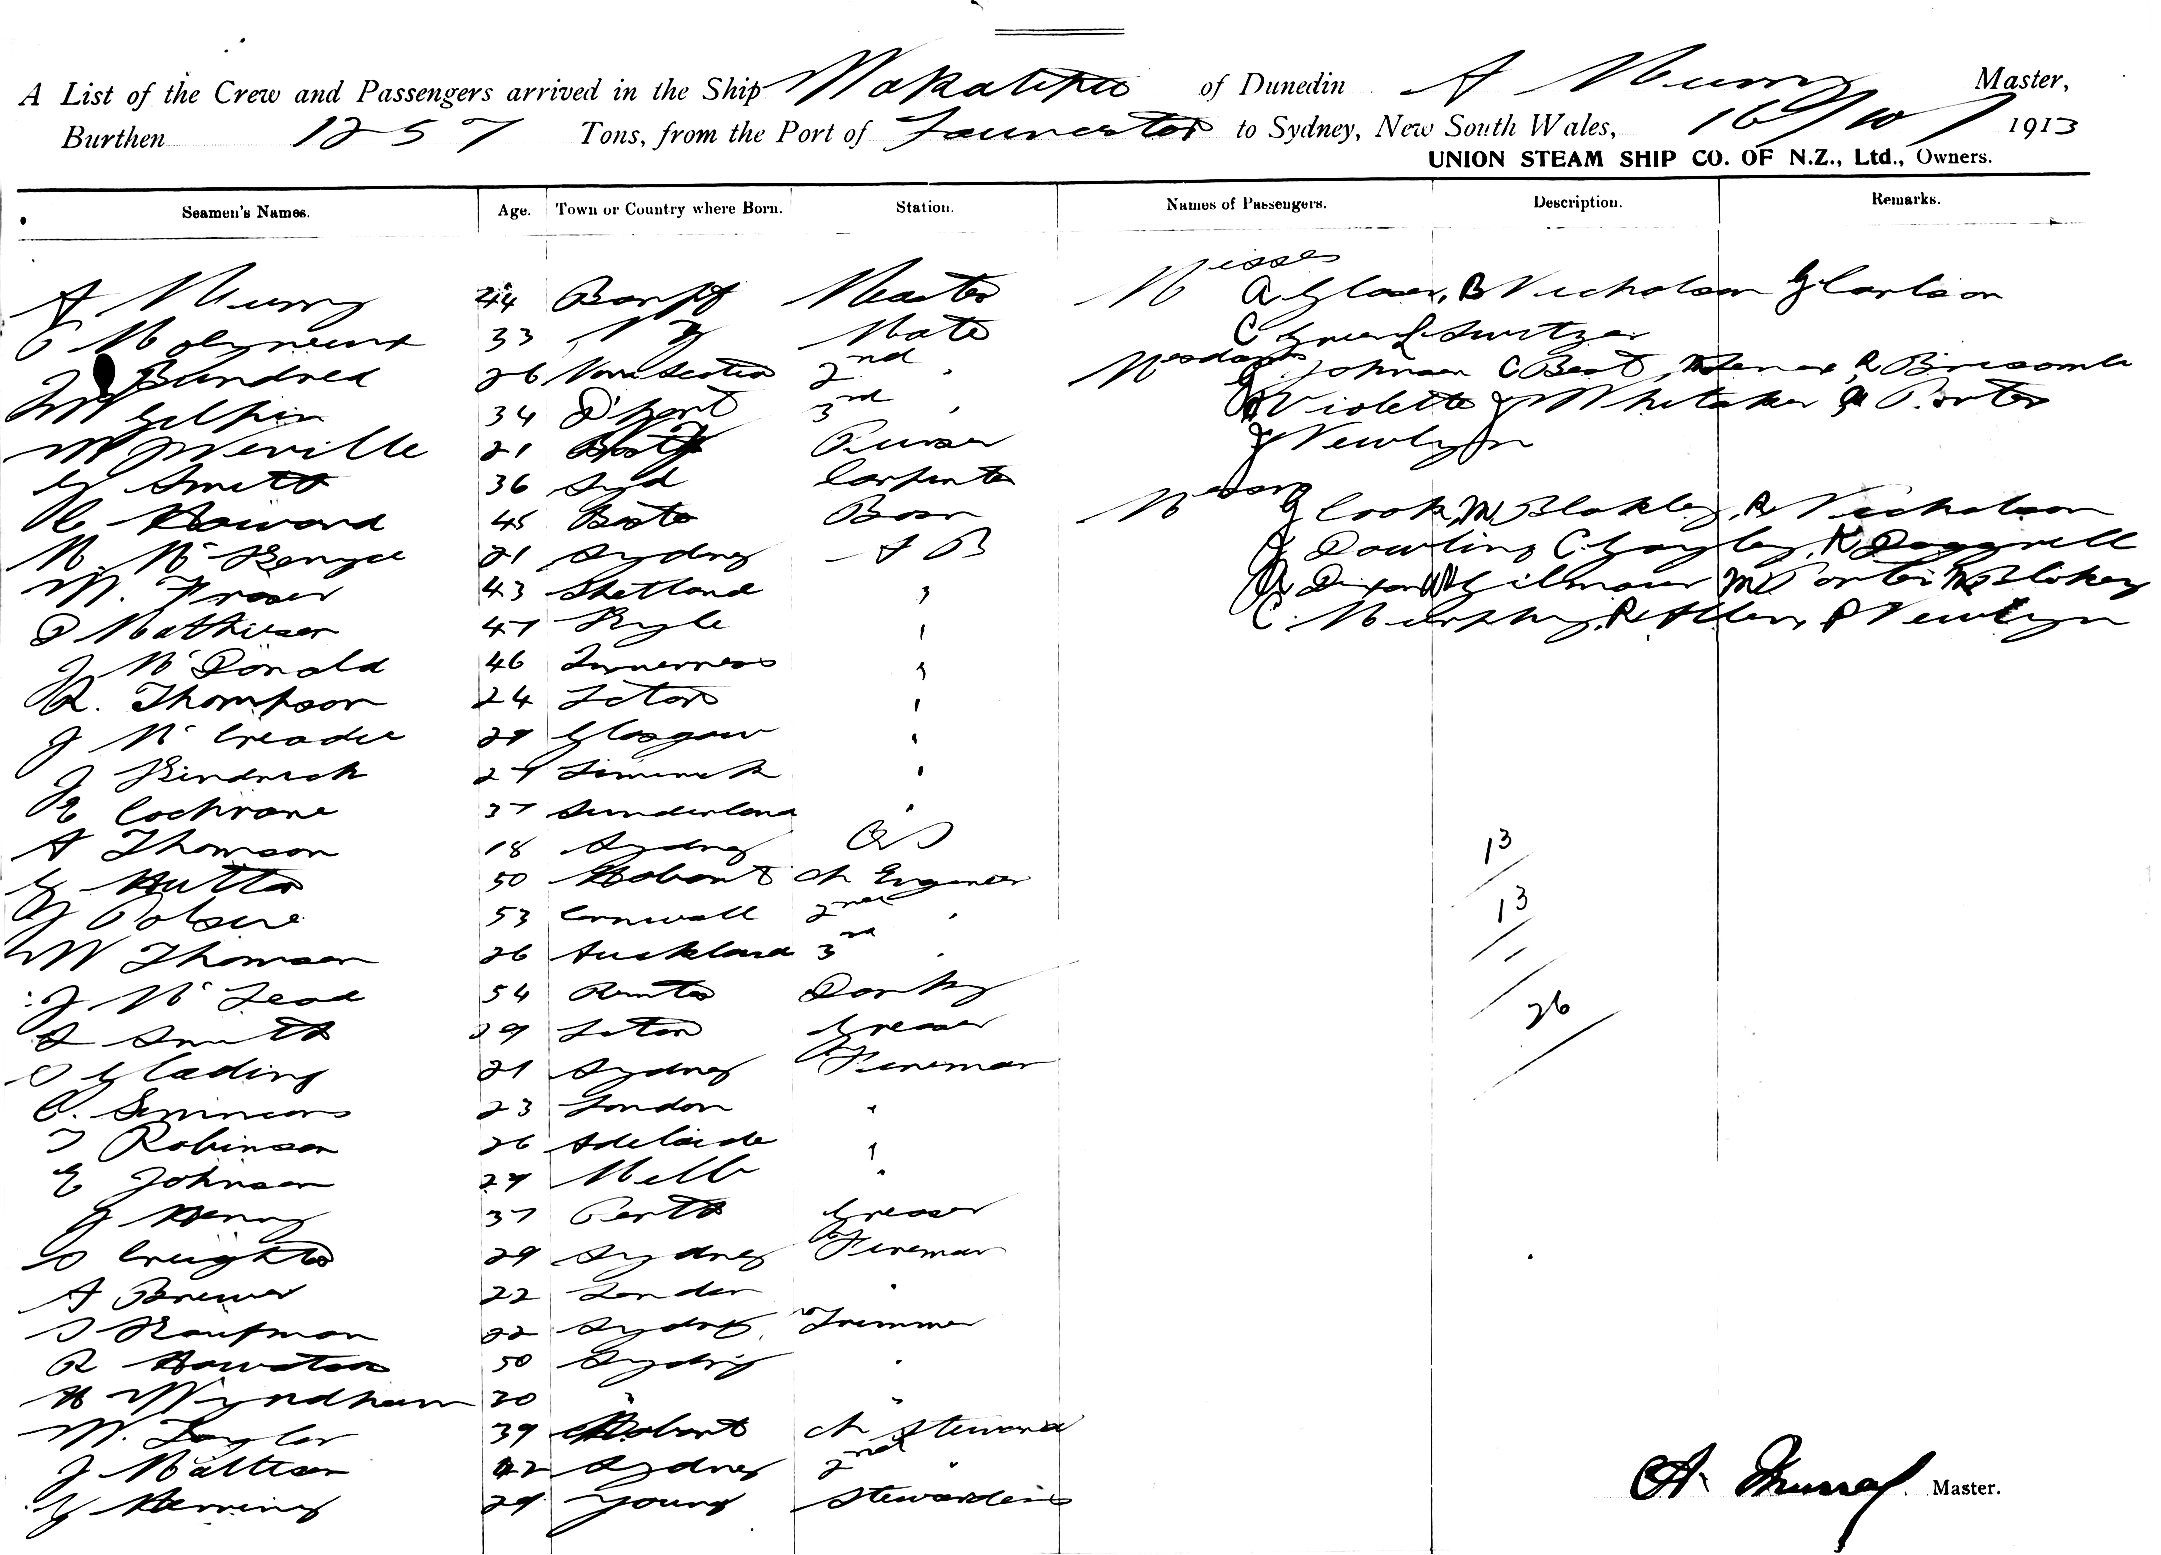 A List of the Crew and Passengers arrived in the Ship Wakatipu of Dunedin A Murray Master,
Burthen 1257 Tons, from the Port of Launceston to Sydney, New South Wales, 16/10/1913
UNION STEAM SHIP CO. OF N.Z., Ltd., Owners.
Seamen's Names. Age. Town or Country where Born. Station. Names of Passengers. Description. Remarks.
A Murray 44 Banff Master Misses A Glaser, B Nicholson G Carlson
C Molyneux 33 NZ Mate C Switzer
J Bundred 26 Nova Scotia 2nd " Mesdames Johnson C Best, R Briscombe
W Gilpin 34 D'port 3rd " Violette J Whitaker Porter
W Neville 21 Purser J Newlyn
G Smith 36 Syd Carpenter
C Howard 45 Bosn Messrs G Cook, M Blakley, R Nicholson
N. McKenzie 21 Sydney A B J Dowling C. Gayley, K Daggrell
M. Fraser 43 Shetland " A Dixon W Gilmour M Porter M Blokey
D Mathieson 47 Kyle " C. Murphy, R Allen, P Newlyn
J McDonald 46 Inverness "
R. Thompson 24 "
J McCreadie 29 Glasgow "
J Kindrick 27 Limerick "
E Cochrane 37 Sunderland "
A Thomson 18 Sydney OS 13
G Hutton 50 Hobart Ch Engineer
J 53 Cornwall 2nd " 13
W Thomson 26 Auckland 3rd "
J McLeod 54 Donky 26
S Smith 29 Greaser
S Glading 21 Sydney Fireman
C. Simmons 23 London "
T Robinson 26 Adelaide "
E Johnson 27 Melb "
J Henry 37 Perth Greaser
D Creighton 29 Sydney Fireman
A Brewer 22 London "
S Kaufman 22 Sydney Trimmer
R Howatson 50 Sydney "
H Wyndham 20 " "
W. Taylor 39 Hobart Ch Steward
J Mattison 42 Sydney 2nd "
G Herring 29 Young Stewardess
A. Murray Master.